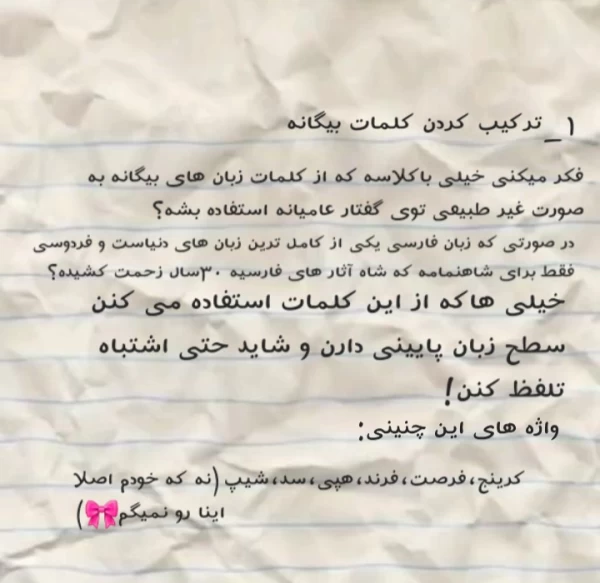 ۱_ ترکیب کردن کلمات بیگانه
فکر میکنی خیلی باکلاسه که از کلمات زبان های بیگانه به
صورت غیر طبیعی توی گفتار عامیانه استفاده بشه؟
در صورتی که زبان فارسی یکی از کامل ترین زبان های دنیاست و فردوسی
فقط برای شاهنمامه که شاه آثار های فارسیه ۳۰سال زحمت کشیده؟
خیلی هاکه از این کلمات استفاده می کنن
سطح زبان پایینی دارن و شاید حتی اشتباه
تلفظ کنن!
واژه های این چنینی:
کرینج،فرصت،فرند،هپی،سد،شیپ(نه که خودم اصلا
اینا رو نمیگم🎀)